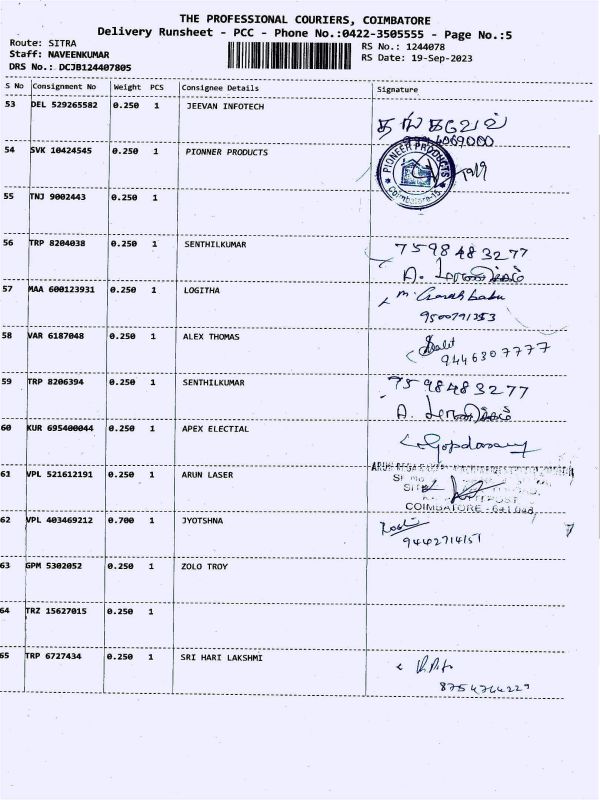 THE PROFESSIONAL COURIERS, COIMBATORE
Delivery Runsheet - PCC - Phone No.:0422-3505555 - Page No.:5
Route: SITRA
RS No.: 1244078
Staff: NAVEENKUMAR
RS Date: 19-Sep-2023
DRS No.: DCJB124407805
S No Consignment No Weight PCS Consignee Details Signature
53 DEL 529265582 0.250 1 JEEVAN INFOTECH
தங்கவேல்
54 SVK 10424545 0.250 1 PIONNER PRODUCTS
PIONEER PRODUCTS
Coimbatore-15
55 TNJ 9002443 0.250 1
56 TRP 8204038 0.250 1 SENTHILKUMAR 7598483277
57 MAA 600123931 0.250 1 LOGITHA
9500791353
58 VAR 6187048 0.250 1 ALEX THOMAS
9446307777
59 TRP 8206394 0.250 1 SENTHILKUMAR 7598483277
60 KUR 695400044 0.250 1 APEX ELECTIAL
61 VPL 521612191 0.250 1 ARUN LASER
COIMBATORE - 641 048
62 VPL 403469212 0.700 1 JYOTSHNA
9442714151
63 GPM 5302052 0.250 1 ZOLO TROY
64 TRZ 15627015 0.250 1
65 TRP 6727434 0.250 1 SRI HARI LAKSHMI
8754764229